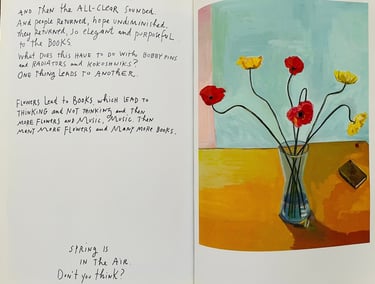 AND THEN THE ALL-CLEAR SOUNDED.
AND PEOPLE RETURNED, HOPE UNDIMINISHED.
THEY RETURNED, SO ELEGANT AND PURPOSEFUL
TO THE BOOKS.
WHAT DOES THIS HAVE TO DO WITH BOBBY PINS
AND RADIATORS AND KOKOSHNIKS?
ONE THING LEADS TO ANOTHER.
FLOWERS LEAD TO BOOKS WHICH LEAD TO
THINKING AND NOT THINKING AND THEN
MORE FLOWERS AND MUSIC, MUSIC. THEN
MANY MORE FLOWERS AND MANY MORE BOOKS.
SPRING IS
IN THE AIR.
DON'T YOU THINK?